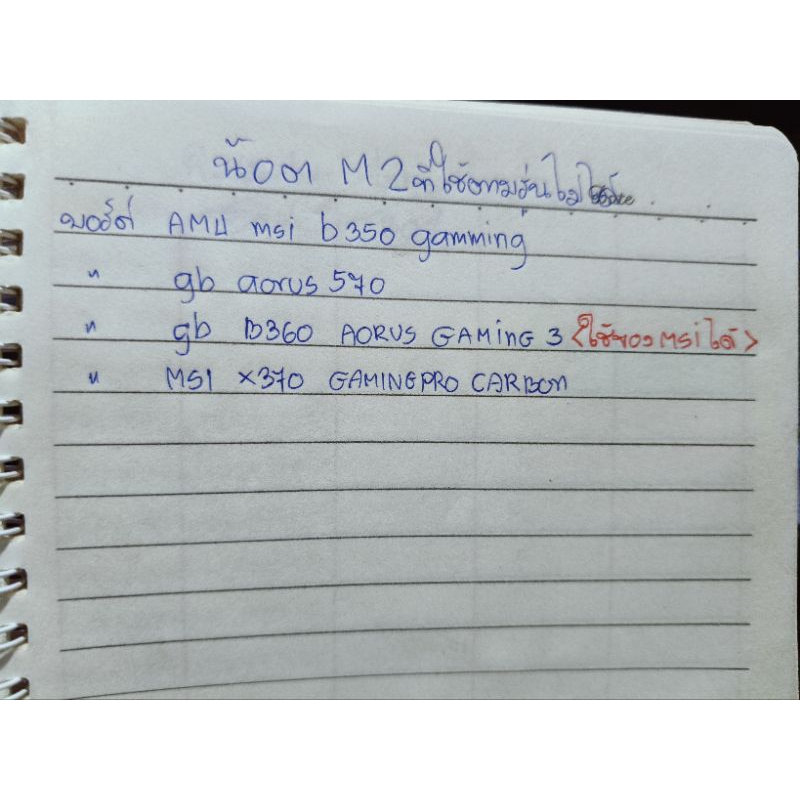 น๊อต M2 ที่ใช้ตามรุ่นไม่ได้
บอร์ด AM4 msi b350 gamming
" gb aorus 570
" gb b360 AORUS GAMING 3 <ใช้ของ MSI ได้>
" MSI X370 GAMINGPRO CARBON